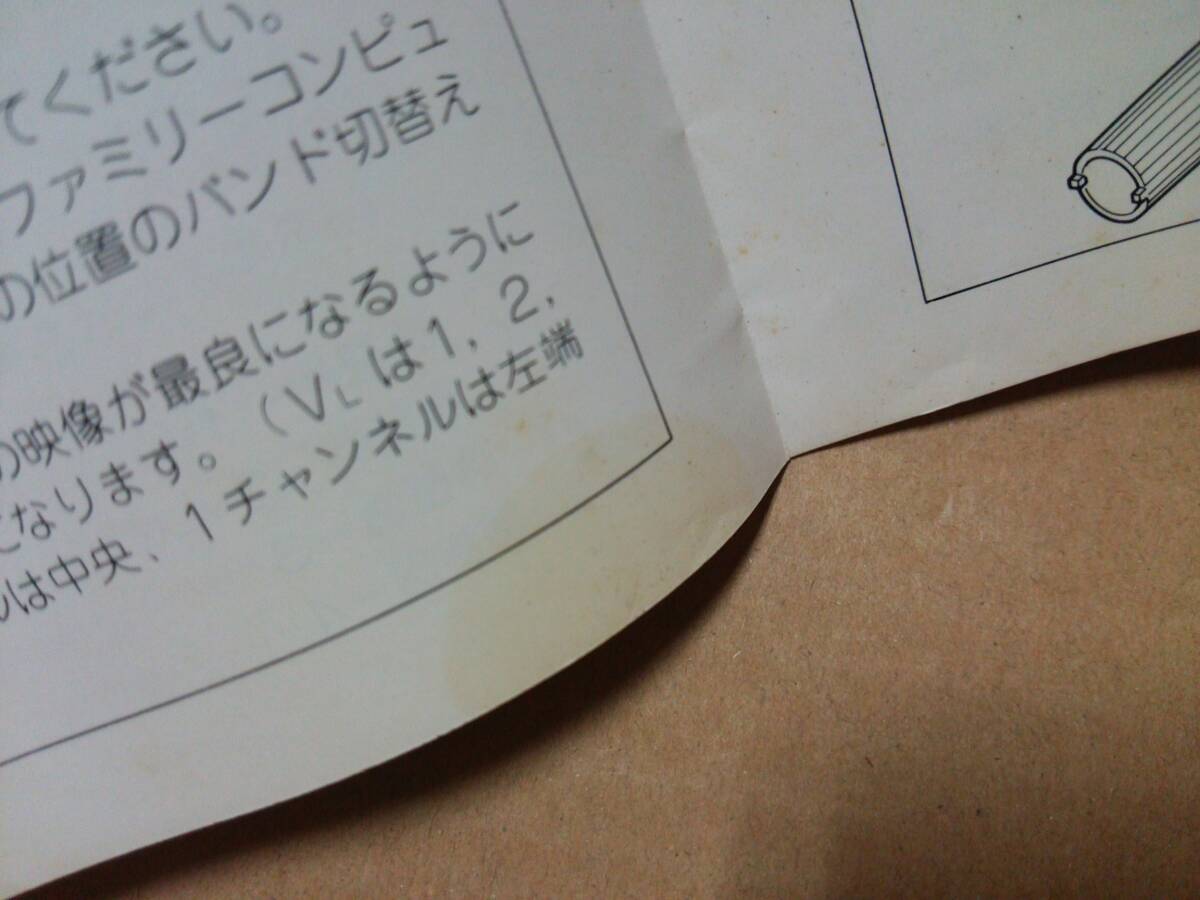 てください。
ファミリーコンピュ
の位置のバンド切替え
の映像が最良になるように
になります。（VLは1，2，
ルは中央、1チャンネルは左端